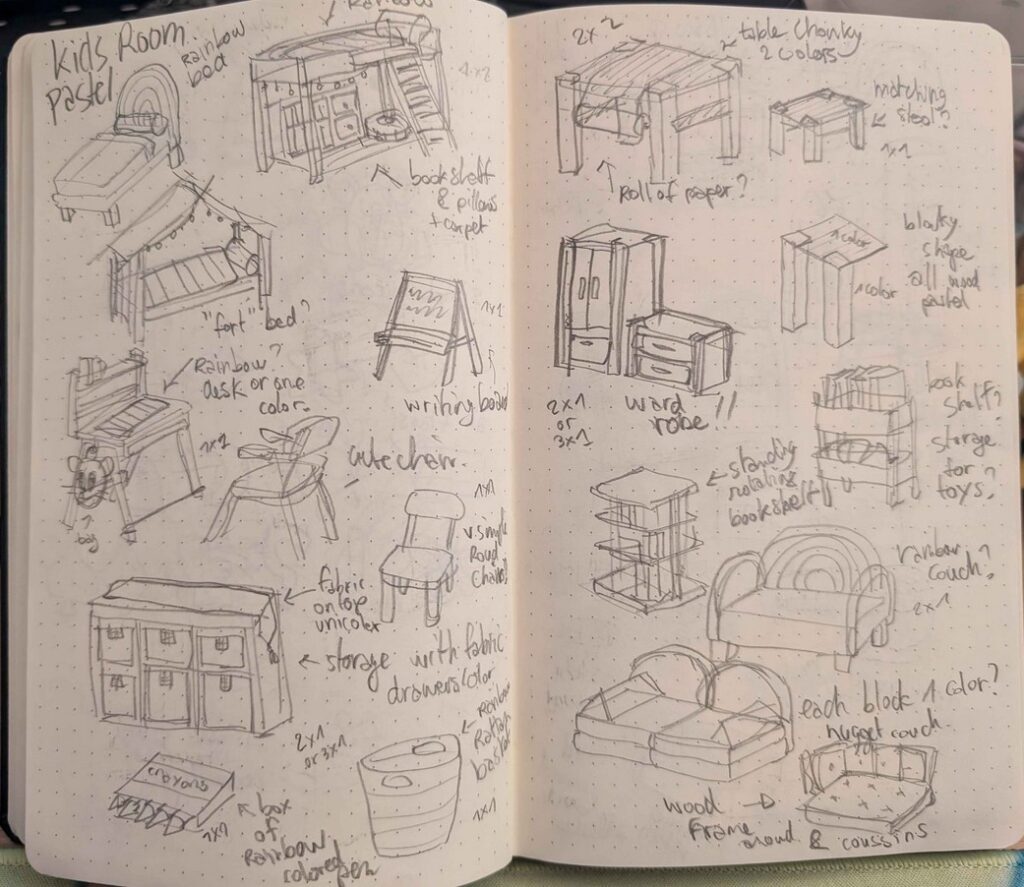 Kids Room
pastel
Rainbow
bed
Rainbow
4x2
bookshelf
& pillows
+ carpet
"fort" bed?
1x1
writing board
Rainbow?
desk or one
color.
1x1
bag
cute chair.
1x1
v. simple
Roud
chair!
fabric
on top
unicolor
storage with fabric
drawers color
2x1
or 3x1
crayons
1x1
box
of
Rainbow
colored pen
Rainbow
Rattan
basket
1x1
2x2
table. Chonky
2 colors
matching
stool?
1x1
Roll of paper?
1 color
1 color
blocky
shape
all wood
pastel
2x1
or
3x1
wardrobe!!
book
shelf?
storage
for
toys?
standing
rotating
bookshelf!!
rainbow
couch?
2x1
each block 1 color?
nugget couch
wood
frame
aroud & coussins